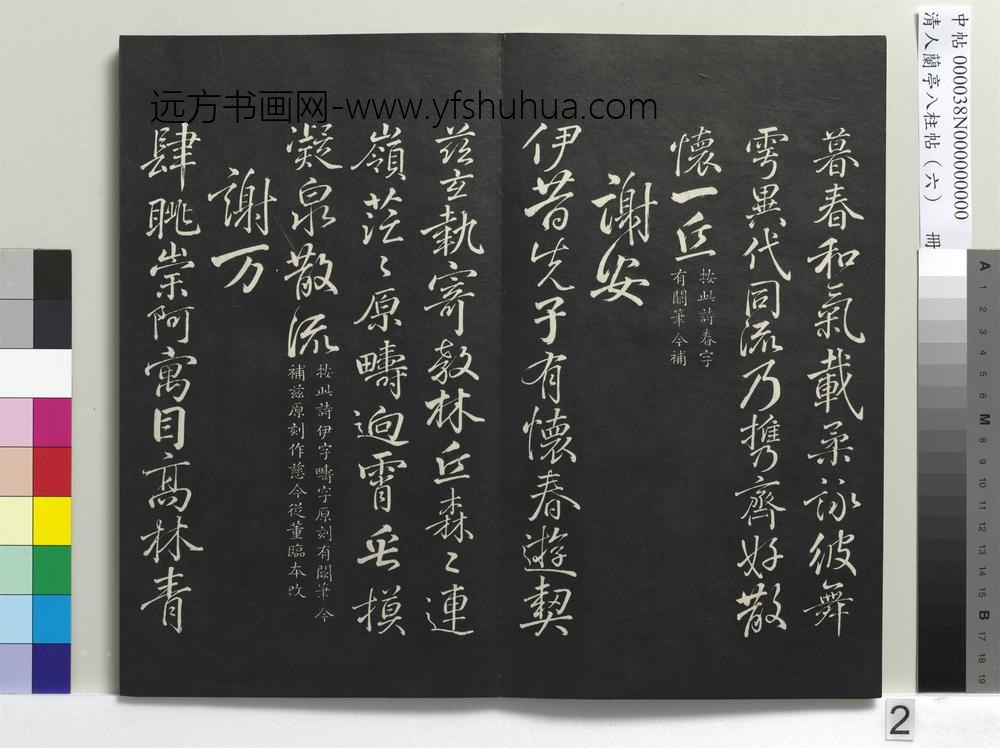 远方书画网-www.yfshuhua.com
中帖 000038N000000000
清人蘭亭八柱帖（六） 冊
暮春和氣載柔詠彼舞
雩異代同流乃携齊好散
懷一丘
按此詩春字
有闕筆今補
謝安
伊昔先子有懷春遊契
茲玄執寄敖林丘森〻連
嶺茫〻原疇逈霄垂
凝泉散流
按此詩伊字疇字原刻有闕筆今
補茲原刻作慈今從董臨本改
謝万
肆眺崇阿寓目高林青
A 1 2 3 4 5 6 M 8 9 10 11 12 13 14 15 B 17 18 19
2